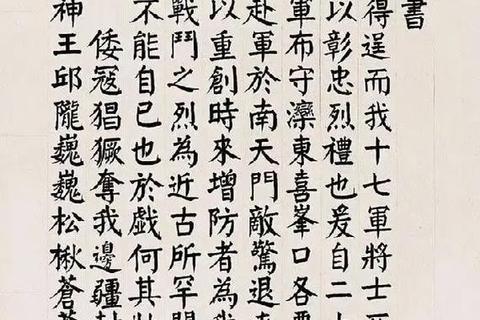 書
得逞而我十七軍將士死
以彰忠烈禮也爰自二十
軍布守灤東喜峯口各要
赴軍於南天門敵驚退
以重創時來增防者為我
戰鬥之烈為近古所罕聞
不能自已也於戲何其壯
倭寇猖獗奪我邊疆
神王邱隴巍巍松楸蒼蒼